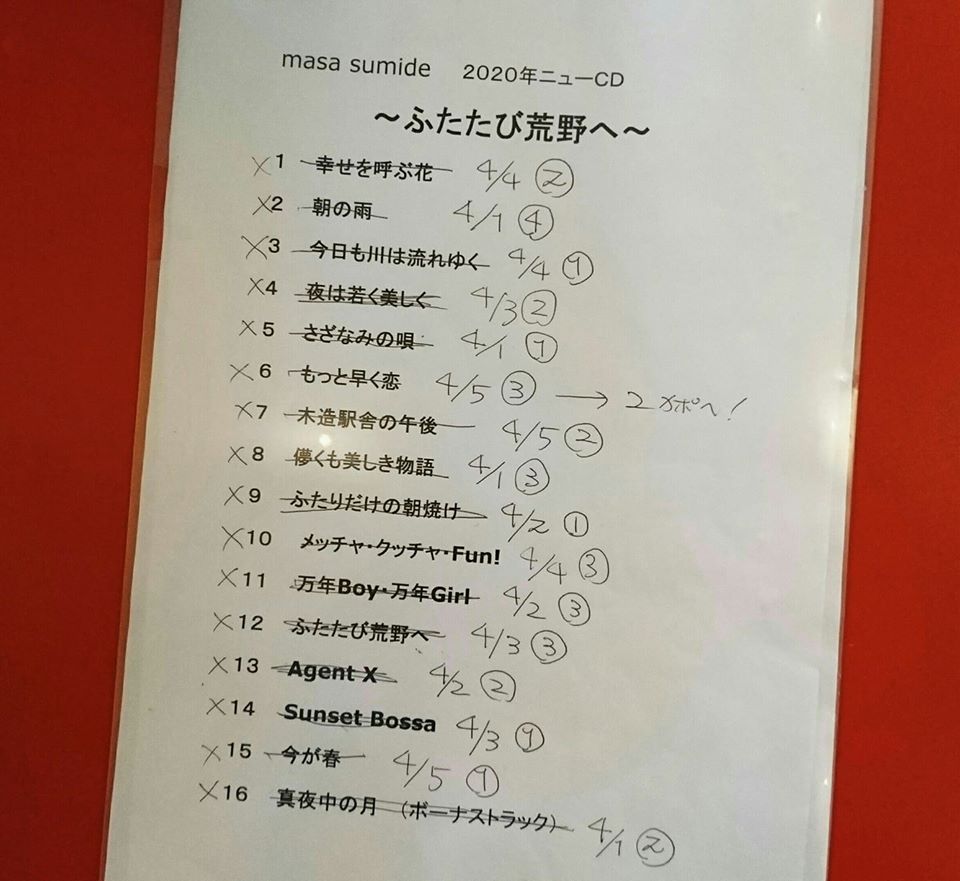 masa sumide 2020年ニューCD
～ふたたび荒野へ～
×1 幸せを呼ぶ花 4/4 ②
×2 朝の雨 4/1 ④
×3 今日も川は流れゆく 4/4 ①
×4 夜は若く美しく 4/3 ②
×5 さざなみの唄 4/1 ①
×6 もっと早く恋 4/5 ③ → 2カポへ!
×7 木造駅舎の午後 4/5 ②
×8 儚くも美しき物語 4/1 ③
×9 ふたりだけの朝焼け 4/2 ①
×10 メッチャ・クッチャ・Fun! 4/4 ③
×11 万年Boy・万年Girl 4/2 ③
×12 ふたたび荒野へ 4/3 ③
×13 Agent X 4/2 ②
×14 Sunset Bossa 4/3 ①
×15 今が春 4/5 ①
×16 真夜中の月 （ボーナストラック） 4/1 ②